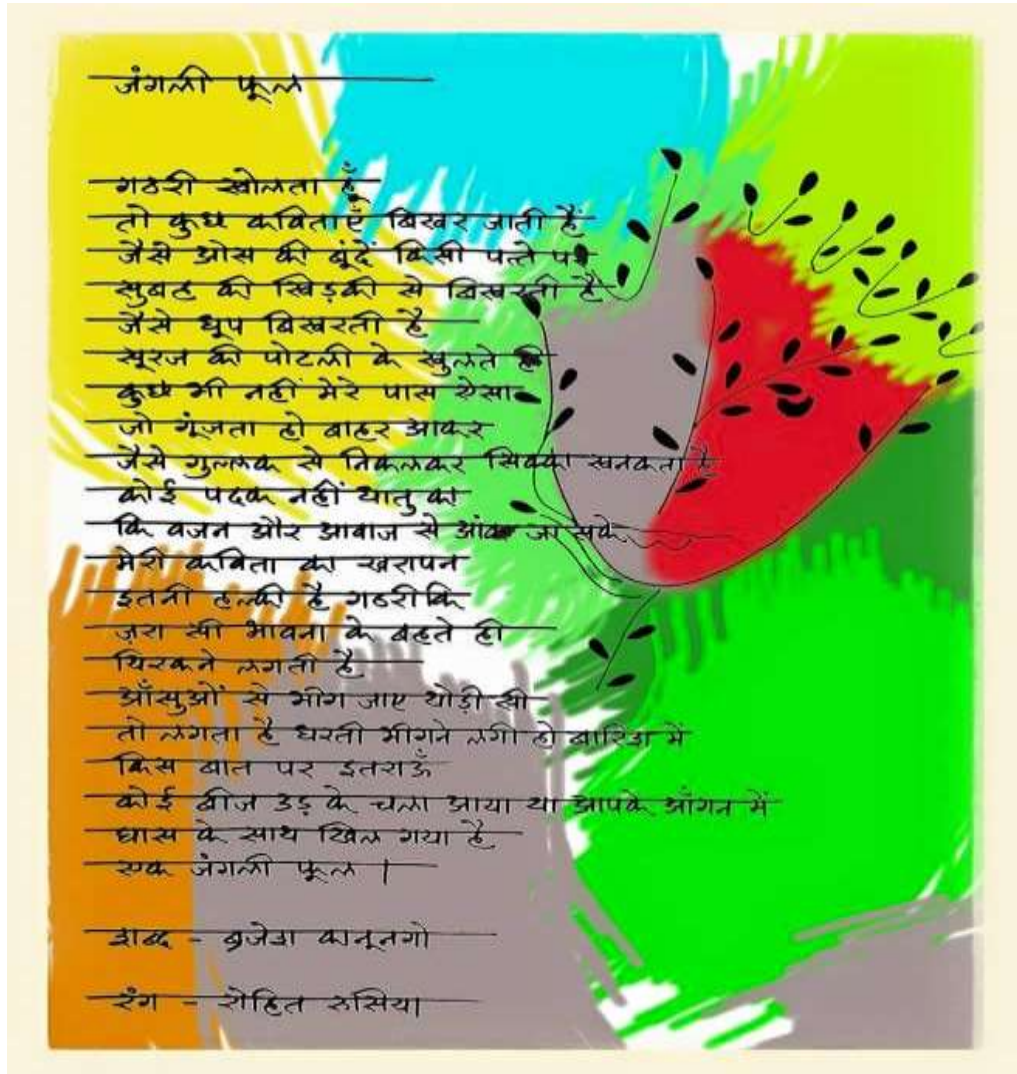 जंगली फूल
गठरी खोलता हूँ
तो कुछ कविताएँ बिखर जाती हैं
जैसे ओस की बूंदें किसी पत्ते पर
सुबह की खिड़की से बिखरती हैं
जैसे धूप बिखरती है
सूरज की पोटली के खुलते ही
कुछ भी नहीं मेरे पास ऐसा
जो गूंजता हो बाहर आकर
जैसे गुल्लक से निकलकर सिक्का खनकता है
कोई पदक नहीं धातु का
कि वजन और आवाज से आंका जा सके
मेरी कविता का खरापन
इतनी हल्की है गठरी कि
ज़रा सी भावना के बहते ही
थिरकने लगती है
आँसुओं से भीग जाए थोड़ी सी
तो लगता है धरती भीगने लगी हो बारिश में
किस बात पर इतराऊँ
कोई बीज उड़ के चला आया था आपके आँगन में
घास के साथ खिल गया है
एक जंगली फूल |
शब्द - ब्रजेश कानूनगो
रंग - रोहित रूसिया